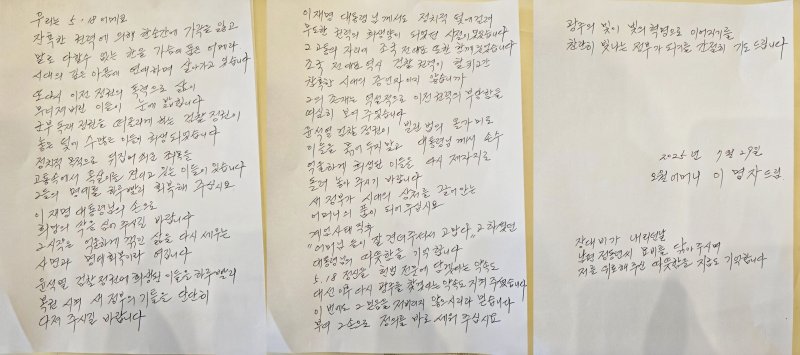 우리는 5.18 어머요
잔혹한 권력에 의해 한순간에 가족을 잃고
말로 다할수 없는 한을 가슴에 품은 어머라
시대의 깊은 아픔에 연대하며 살아가고 있습니다
또다시 이전 정권의 폭력으로 삶이
무너져버린 이들이 눈에 밟힙니다
군부 독재 정권을 떠올리게 하는 검찰정권이
놓은 덫에 수많은 이들이 희생되었습니다
정치적 목적으로 뒤집어 씌운 죄목들
고통속에서 옥살이를 견디고 있는 이들이 있습니다
그들의 명예를 하루빨리 회복해 주십시요
이재명 대통령님의 손으로
희망의 싹을 심어 주시길 바랍니다
그 시작은 억울하게 꺾인 삶을 다시 세우는
사면과 명예회복이라 여깁니다
윤석열 검찰정권에 희생된 이들을 하루빨리
복권 시켜 새 정부의 기틀을 단단히
다져 주시길 바랍니다
이재명 대통령님께서도 정치적 덫에 걸려
무도한 권력의 희생양이 되었던 시절이 있었습니다
그 고통의 자리에 조국 전대표 또한 함께 있었습니다
조국 전대표 역시 검찰 권력이 할퀴고간
참혹한 시대의 증인자이지 않습니까
그의 존재는 역설적으로 이전 권력의 부당함을
여실히 보여 주었습니다
윤석열 검찰 정권이 법란 법의 올가미로
이들을 묶어 두지 말고 대통령님께서 손수
억울하게 희생된 이들을 다시 제자리로
돌려 놓아 주시기 바랍니다
새 정부가 시대의 상처를 감싸안는
어머니의 품이 되어 주십시요
계엄사태 직후
"어머니들이 잘 견뎌주셔서 고맙다" 그 하셨던
대통령님의 따뜻함을 기억합니다
5.18 정신을 헌법 전문에 담겠다는 약속도
대선 이후 다시 광주를 찾겠다는 약속도 지켜 주셨습니다
이번에도 그 믿음을 저버리지 않으시리라 믿습니다
부디 그 손으로 정의를 바로 세워 주십시요
광주의 빛이 빛의 혁명으로 이어지기를
찬란히 빛나는 정부가 되기를 간절히 기도 드립니다
2025년 7월 29일
오월어머니 이명자 드림
장대비가 내리던날
남편 정동년씨 묘비를 닦아주시며
저를 위로해 주신 따뜻함을 지금도 기억합니다